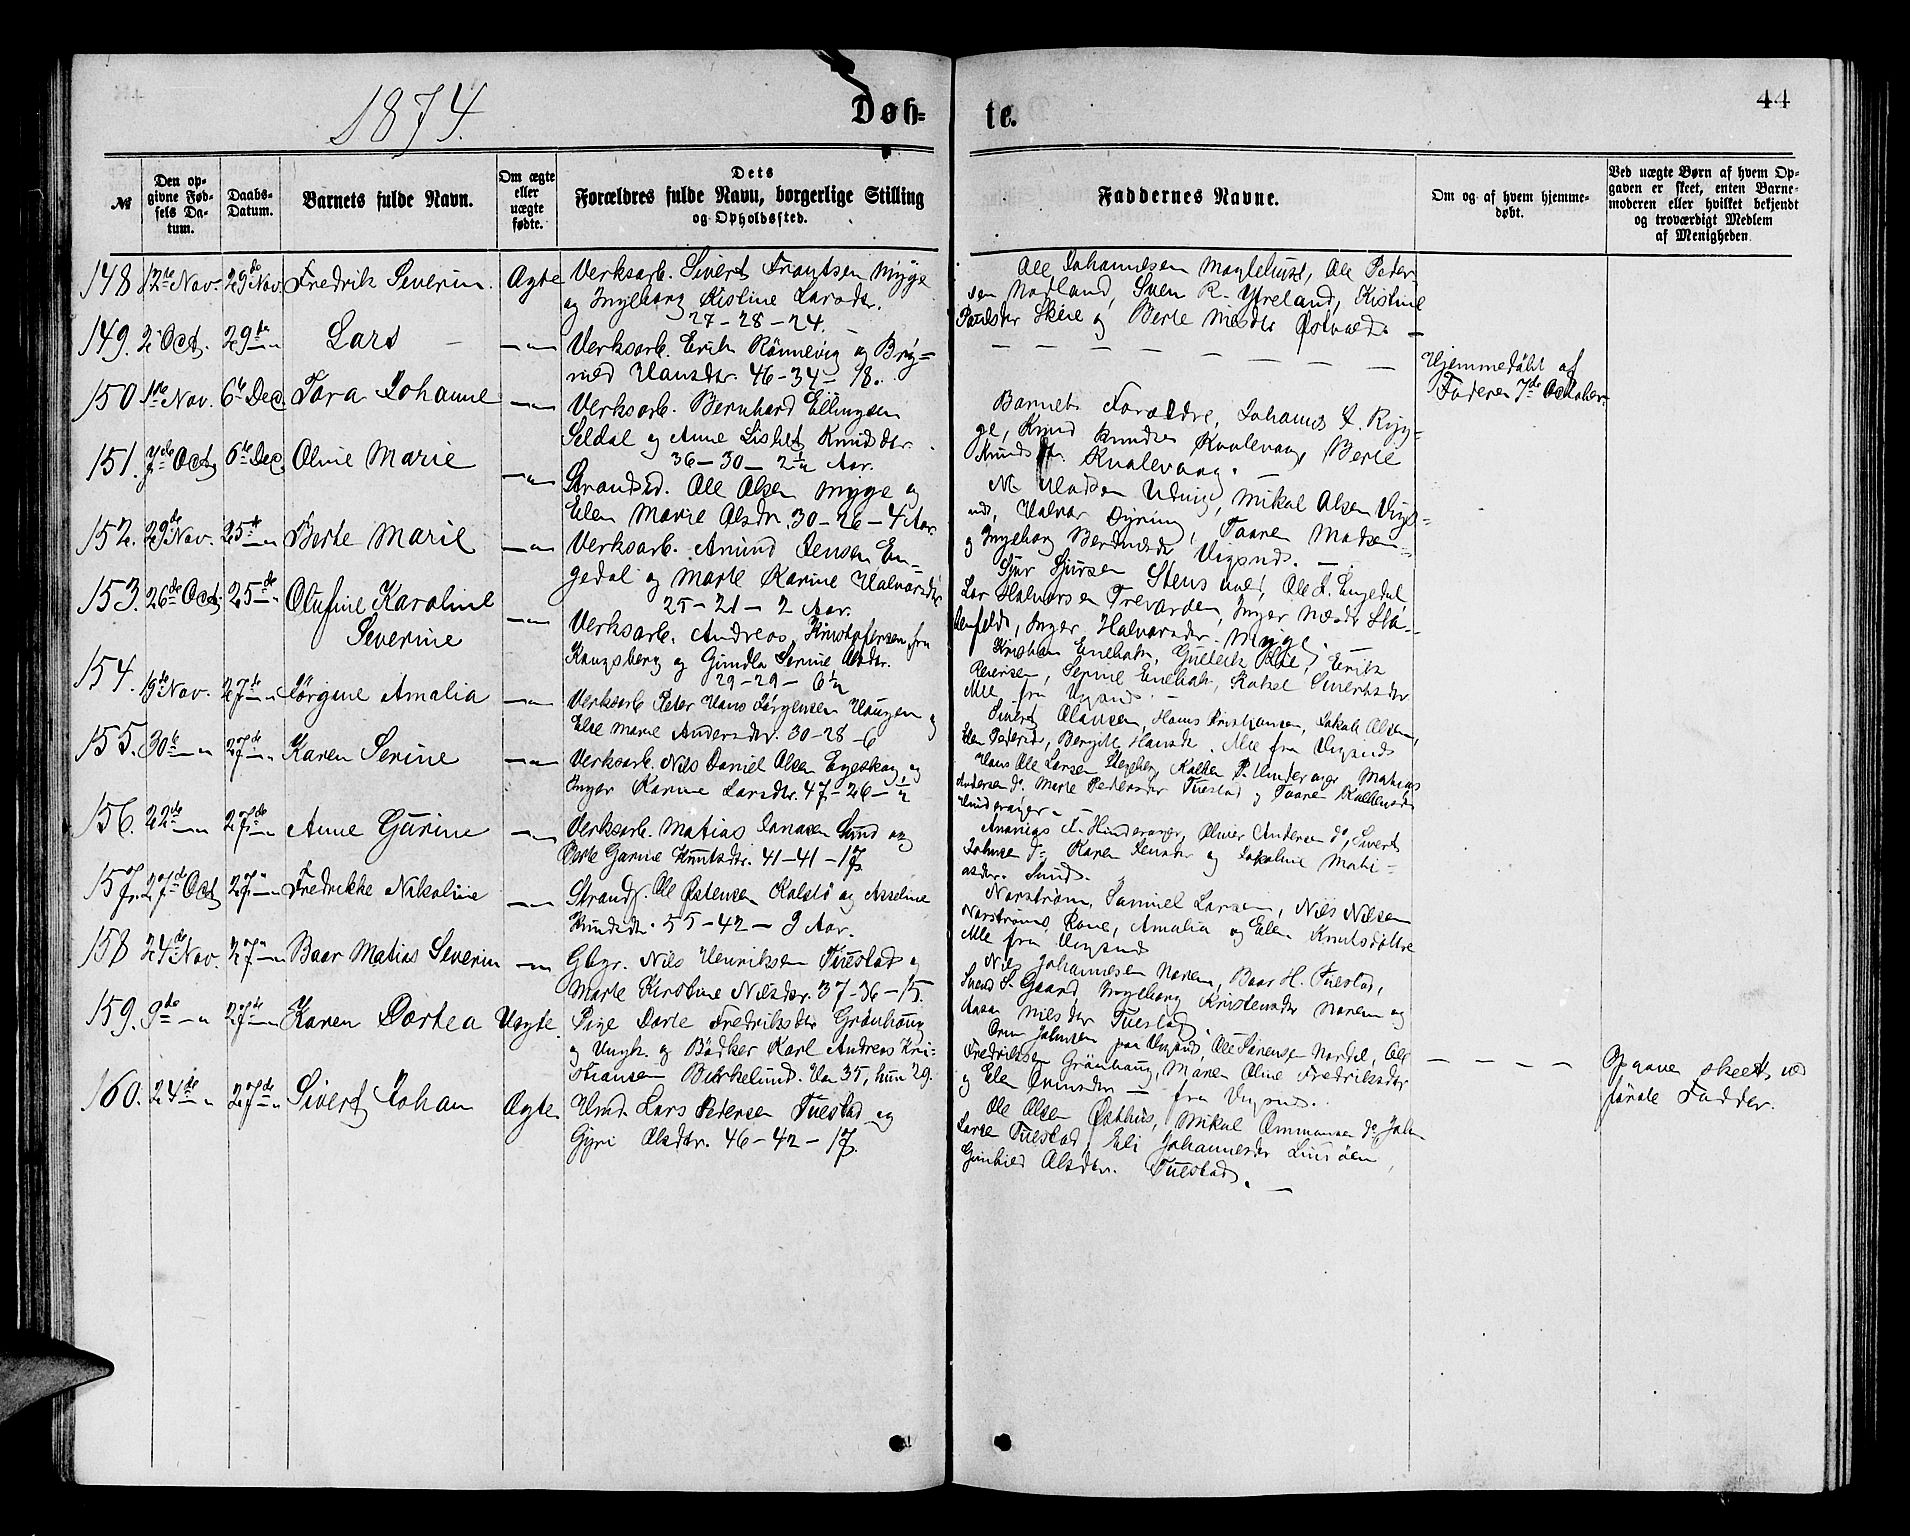 1874.
Døb-
te.
44
№
Den op-
givne Fød-
sels Da-
tum.
Daabs-
Datum.
Barnets fulde Navn.
Om ægte
eller
uægte
fødte.
Dets
Forældres fulde Navn, borgerlige Stilling
og Opholdssted.
Faddernes Navne.
Om og af hvem hjemme-
døbt.
Ved uægte Børn af hvem Op-
gaven er skeet, enten Barne-
moderen eller hvilket bekjendt
og troværdigt Medlem
af Menigheden.
148 12te Nov. 29de Nov. Fredrik Severin. Ægte Verksarb. Sivert Frantsen Mygge
og Ingeborg Kistine Larsdtr.
27-28-24.
Ole Johannesen Ole Peder
sen Nodland, Sven R. Ytreland, Kistine
Paulsdtr Skeie og Berte
149. 2 Oct. 29de Lars - -"- Verksarb. Erik Rönnevig og Bry-
nild Hansdtr. 46-34-18.
Hjemmedöbt af
Faderen 7de October.
150 1ste Nov. 6te Dec. Tora Johanne -"- Verksarb. Bernhard Ellingsen
Seldal og Anne Lisbet Knudsdtr.
36-30-2½ Aar.
Barnets Forældre, Johannes Ryg-
ge, Knud Knudsen Kvalevaag, Berte
Knudsdtr. Kvalevaag.
151. 7de Oct. 6te Dec. Oline Marie -"- Strandsd. Ole Olsen Mygge og
Elen Marie Olsdtr. 30-26-4 Aar.
Mikal Olsen Vigs-
nes, Halvor Dyrning, Taaren Madsen
og Ingeborg Vigsnæs.
152. 29de Nov. 25de -"- Berte Marie -"- Verksarb. Amund Jensen En-
gedal og Marte Karine Halvorsdtr
25-21-2 Aar.
Sjur Sjursen Ole J. Engedal
Lar Halvorsen Trevarden, Inger
Inger Halvorsdtr. Mygge.
153. 26de Oct. 25de -"- Olufine Karoline
Severine -"- Verksarb. Andreas Kristofersen fra
Kongsberg og Gunilla Serine Olsdtr.
29-29-6½
Kristian Eneholm, Erik
Serine Eneholm, Rakel Sivertsdtr
Alle fra Vigsnæs.
154. 19de Nov. 27de -"- Jörgine Amalia -"- Verksarb. Peter Hans Jörgensen Haugen og
Else Marie Andersdtr. 30-28-6
Sivert Olausen, Hans Kristiansen, Jakob Olsen,
Elen Pedersdtr, Bergitte Hansdtr. Alle fra Vigsnæs
155. 30te -"- 27de -"- Karen Serine -"- Verksarb. Nils Daniel Olsen Egeskog, og
Inger Karine Larsdtr. 47-26-½
Hans Ole Larsen Matias
Andersen do. Marte Pedersdtr Tuestad og Taaren
156. 22de -"- 27de -"- Anne Gurine -"- Verksarb. Matias Jonasen Sund og
Berte Gurine Knutsdtr. 41-41-17
Ananias A. Hinderager, Oliver Andersen do, Sivert
Johnsen do. Karen Jensdtr og Jakobine Mati-
asdtr. Sund.
157. 27de Oct. 27" -"- Fredrikke Nikoline -"- Strands. Ole Östensen Kolstö og Asseline
Knudsdtr. 55-42-9 Aar.
Norström, Samuel Larsen, Nils Nilsen
Norströms Kone, Amalia og Elen Knutsdöttre
Alle fra Vigsnæs
158 24de Nov. 27" -"- Baar Matias Severin -"- Gbgr. Nils Henriksen Tuestad og
Marte Kirstine Nilsdtr. 37-36-15.
Nils Johannesen Norem, Baar H. Tuestad,
Svend S. Gaard, Ingeborg Kristensdtr Norem og
Aasa Nilsdtr Tuestad.
159. 9de -"- 27de -"- Karen Dortea Uægte. Pige Dorte Fredriksdtr Grönhaug
og Ungk. og Bödker Karl Andreas Kri-
stiansen Birkelund. Han 35, hun 29.
Orm Johnsen paa Vigsnæs, Ole Sörensen Nordal, Ole
Fredriksen Grönhaug, Maren Oline Fredriksdtr
og Elen Ormsdtr — fra Vigsnæs.
Opgaven skeet ved
förste Fadder.
160. 24de -"- 27de -"- Sivert Johan Ægte Hmd. Lars Pedersen Tuestad og
Gyri Olsdtr. 46-42-17.
Ole Olsen Östhus, Mikal Ommunsen do, John
Larse Tuestad, Eli Johannesdtr
Gunhild Olsdtr. Tuestad.